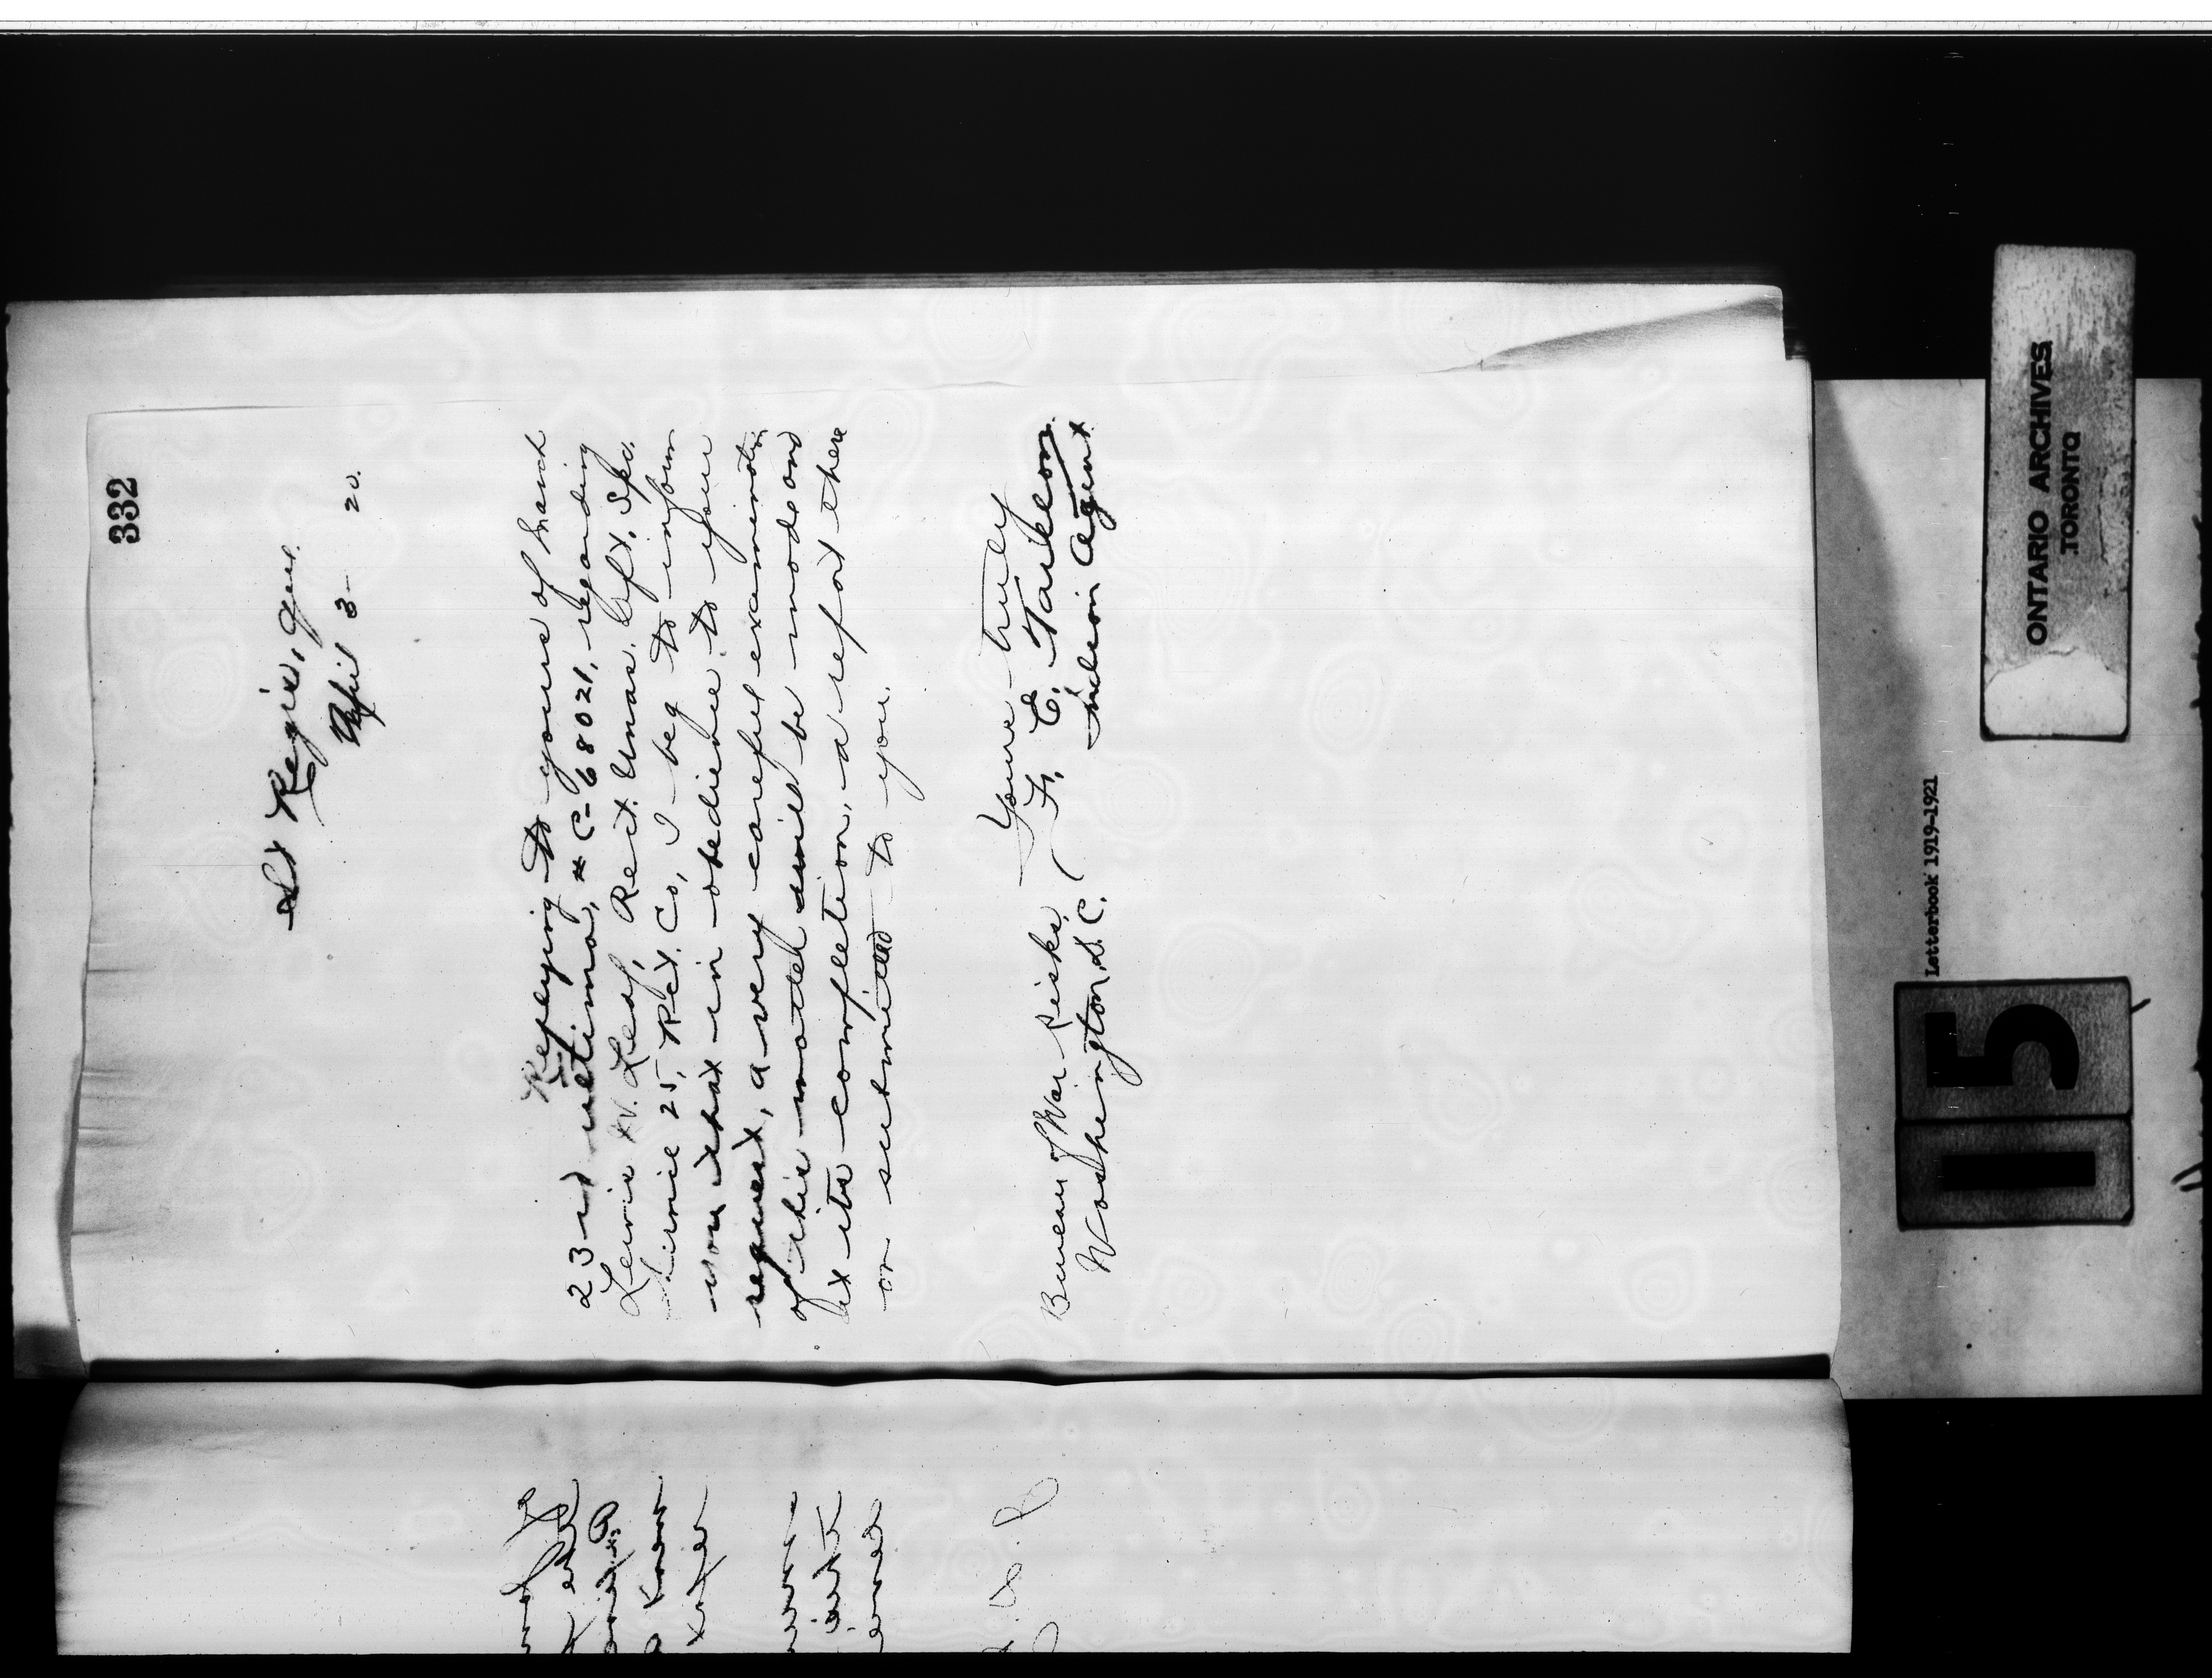 332
St Regis, Que.
April 3- 20.
Replying to yours of March
23-rd ultimo, # C-68021, regarding
Lewis W. Leaf, Rect. Unas.
25, Rct. Co, I beg to inform
you that in obedience to your
request, a very careful examination
of this matter will be made and
at its completion, a report there
on submitted to you.
Yours truly
F. E. Taillon.
Indian Agent.
Bureau of War Risks,
Washington, D. C.
ONTARIO ARCHIVES
TORONTO
Letterbook 1919-1921
115